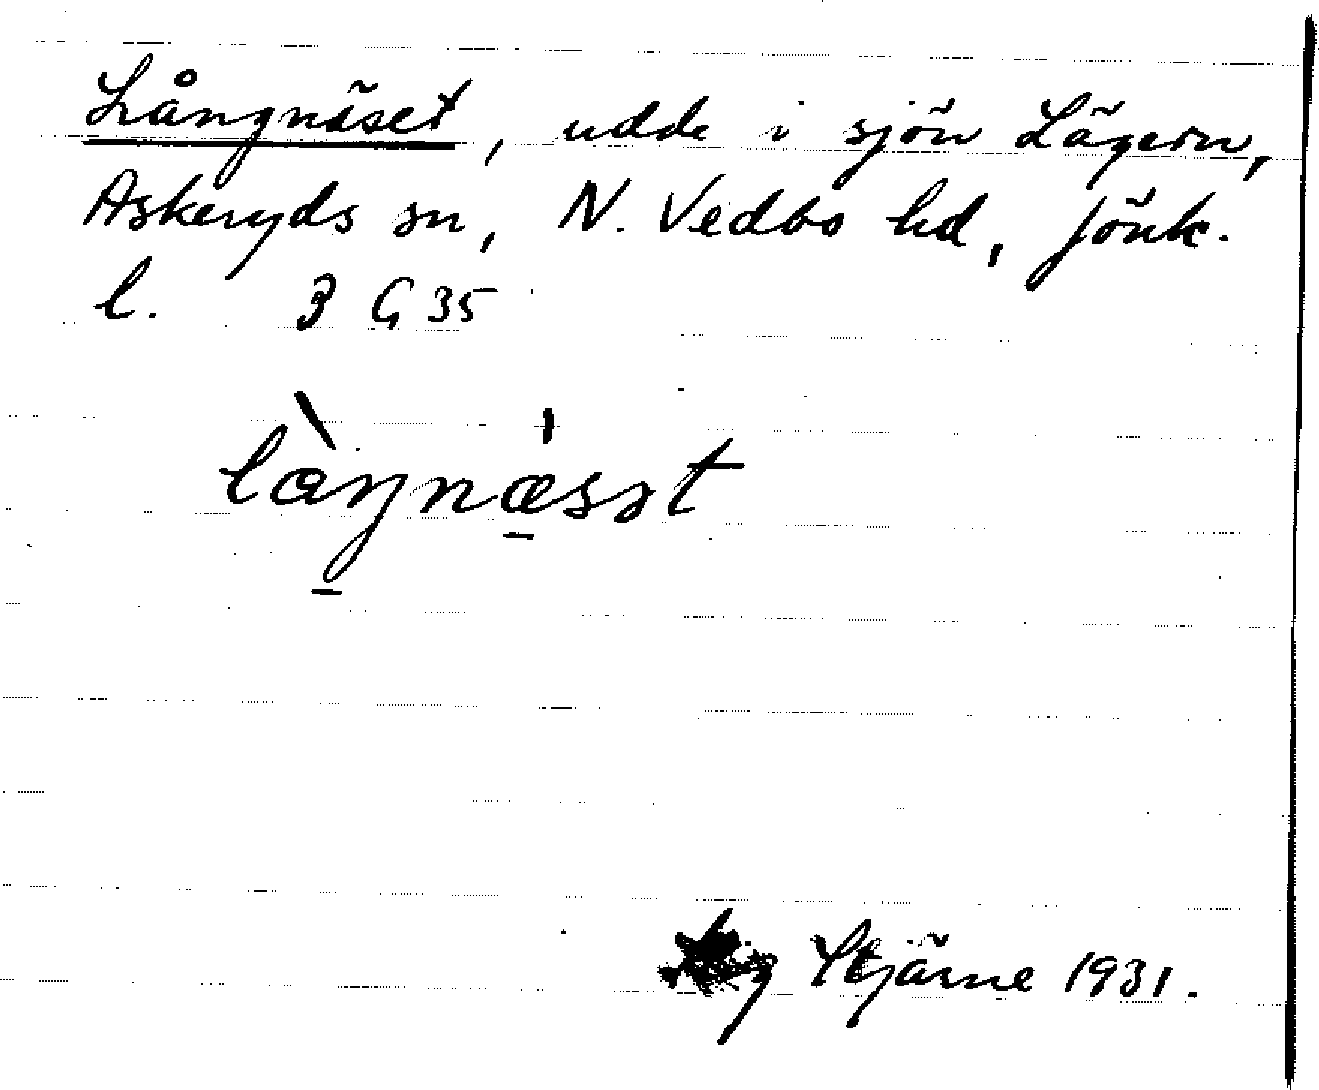 Långnäset, udde i sjön Lägern,
Askeryds sn, N. Vedbo hd, Jönk.
l. 3 G 35
làŋnæsət
Stjärne 1931.